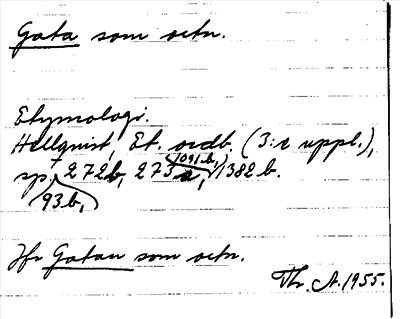 Gata som ortn.
Etymologi.
Hellquist, Et. ordb. (3:e uppl.),
1091 b,
sp. 272b, 273 a, 1382 b.
93 b,
Jfr Gatan som ortn.
Th. A. 1955.